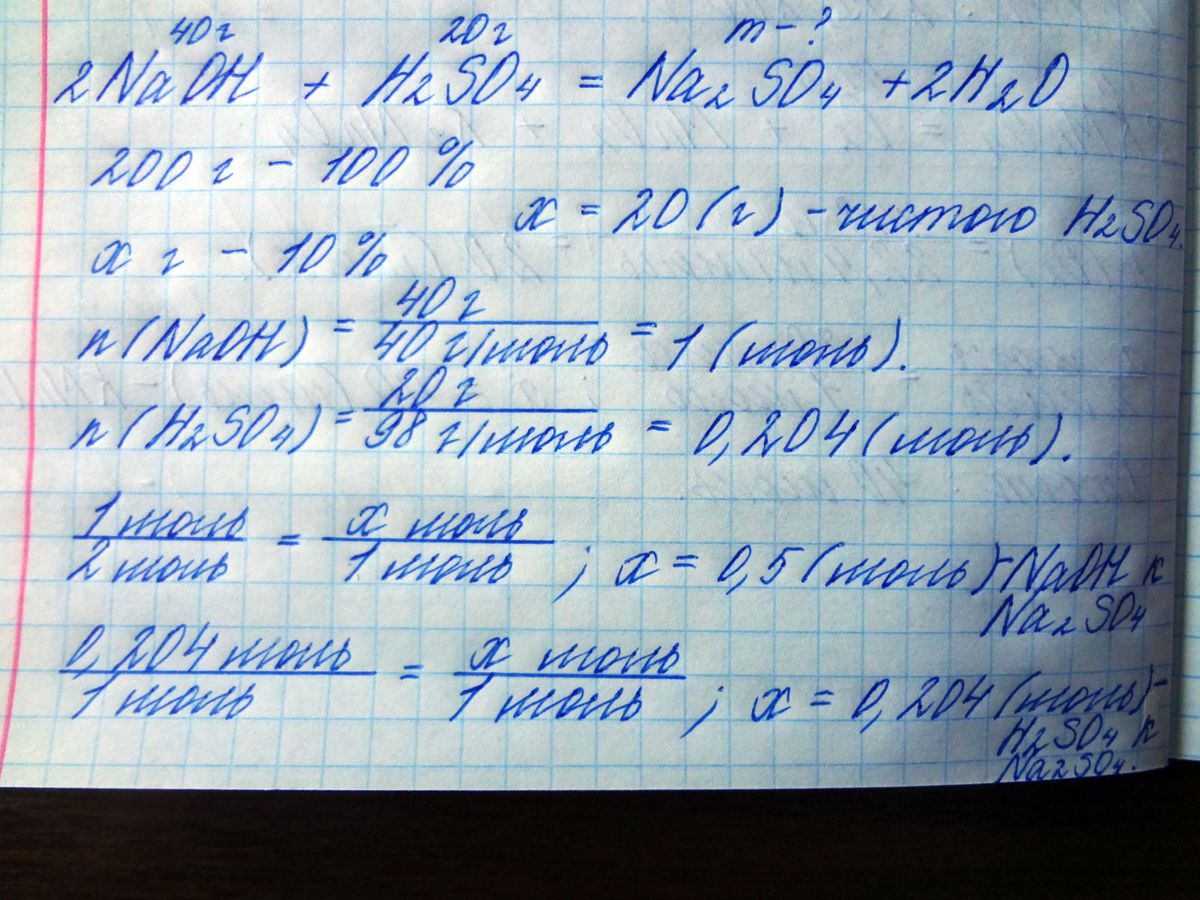 40г 20г m - ?
2NaOH + H2SO4 = Na2SO4 + 2H2O
200 г - 100 %
x = 20 (г) - чистого H2SO4.
x г - 10 %
n (NaOH) = 40 г / 40 г/моль = 1 (моль).
n (H2SO4) = 20 г / 98 г/моль = 0,204 (моль).
1 моль / 2 моль = x моль / 1 моль ; x = 0,5 (моль) - NaOH к
Na2SO4
0,204 моль / 1 моль = x моль / 1 моль ; x = 0,204 (моль) -
H2SO4 к
Na2SO4.